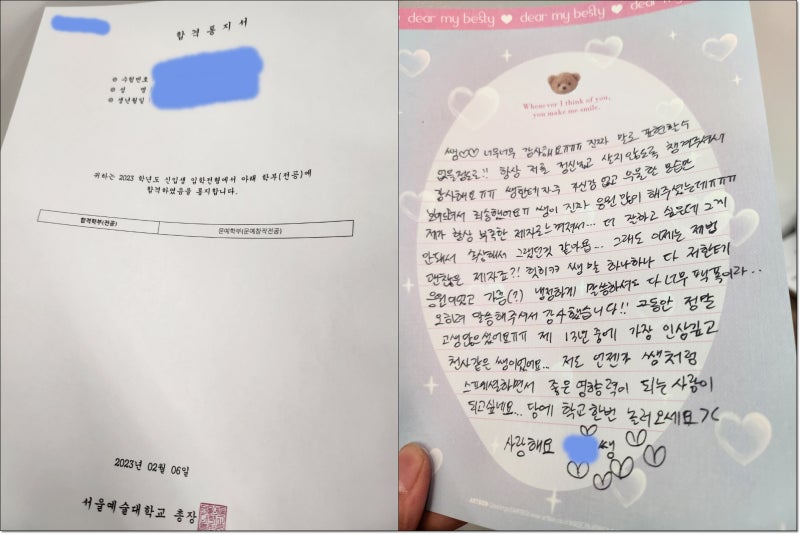 합격통지서
⊙ 수험번호
⊙ 성 명
⊙ 생년월일
귀하는 2023 학년도 신입생 입학전형에서 아래 학부(전공)에
합격하였음을 통지합니다.
합격학부(전공) 문예학부(문예창작전공)
2023년 02월 06일
서울예술대학교 총장
dear my besty dear my besty dear my
Whenever I think of you,
you make me smile.
쌤♡♡ 너무너무 감사해요ㅠㅠㅠ 진짜 말로 표현할 수
없을정도로!! 항상 저를 정신놓고 살지 않도록 챙겨주셔서
감사해요ㅠㅠ 쌤한테 자꾸 자신감 없고 우울한 모습만
보여줘서 죄송했어요ㅠ 쌤이 진짜 응원 많이 해주셨는데ㅠㅠㅠㅠ
제가 항상 부족한 제자로 느껴져서... 더 잘하고 싶은데 그게
안돼서 속상해서 그랬던것 같아욥... 그래도 이제는 제법
괜찮은 제자죠?! 힛히ㅋㅋ 쌤 말 하나하나 다 저한테
응원이었고 가끔(?) 냉정하게 말씀하셔도 다 너무 팩폭이라..
오히려 말씀해주셔서 감사했습니다!! 그동안 정말
고생많으셨어요ㅠㅠ 제 인생 중에 가장 인상깊고
천사같은 쌤이었어요... 저도 언젠가 쌤처럼
스페셜하면서 좋은 영향력이 되는 사람이
되고싶네요... 담에 학교 한번 놀러오세요><
사랑해요 쌤